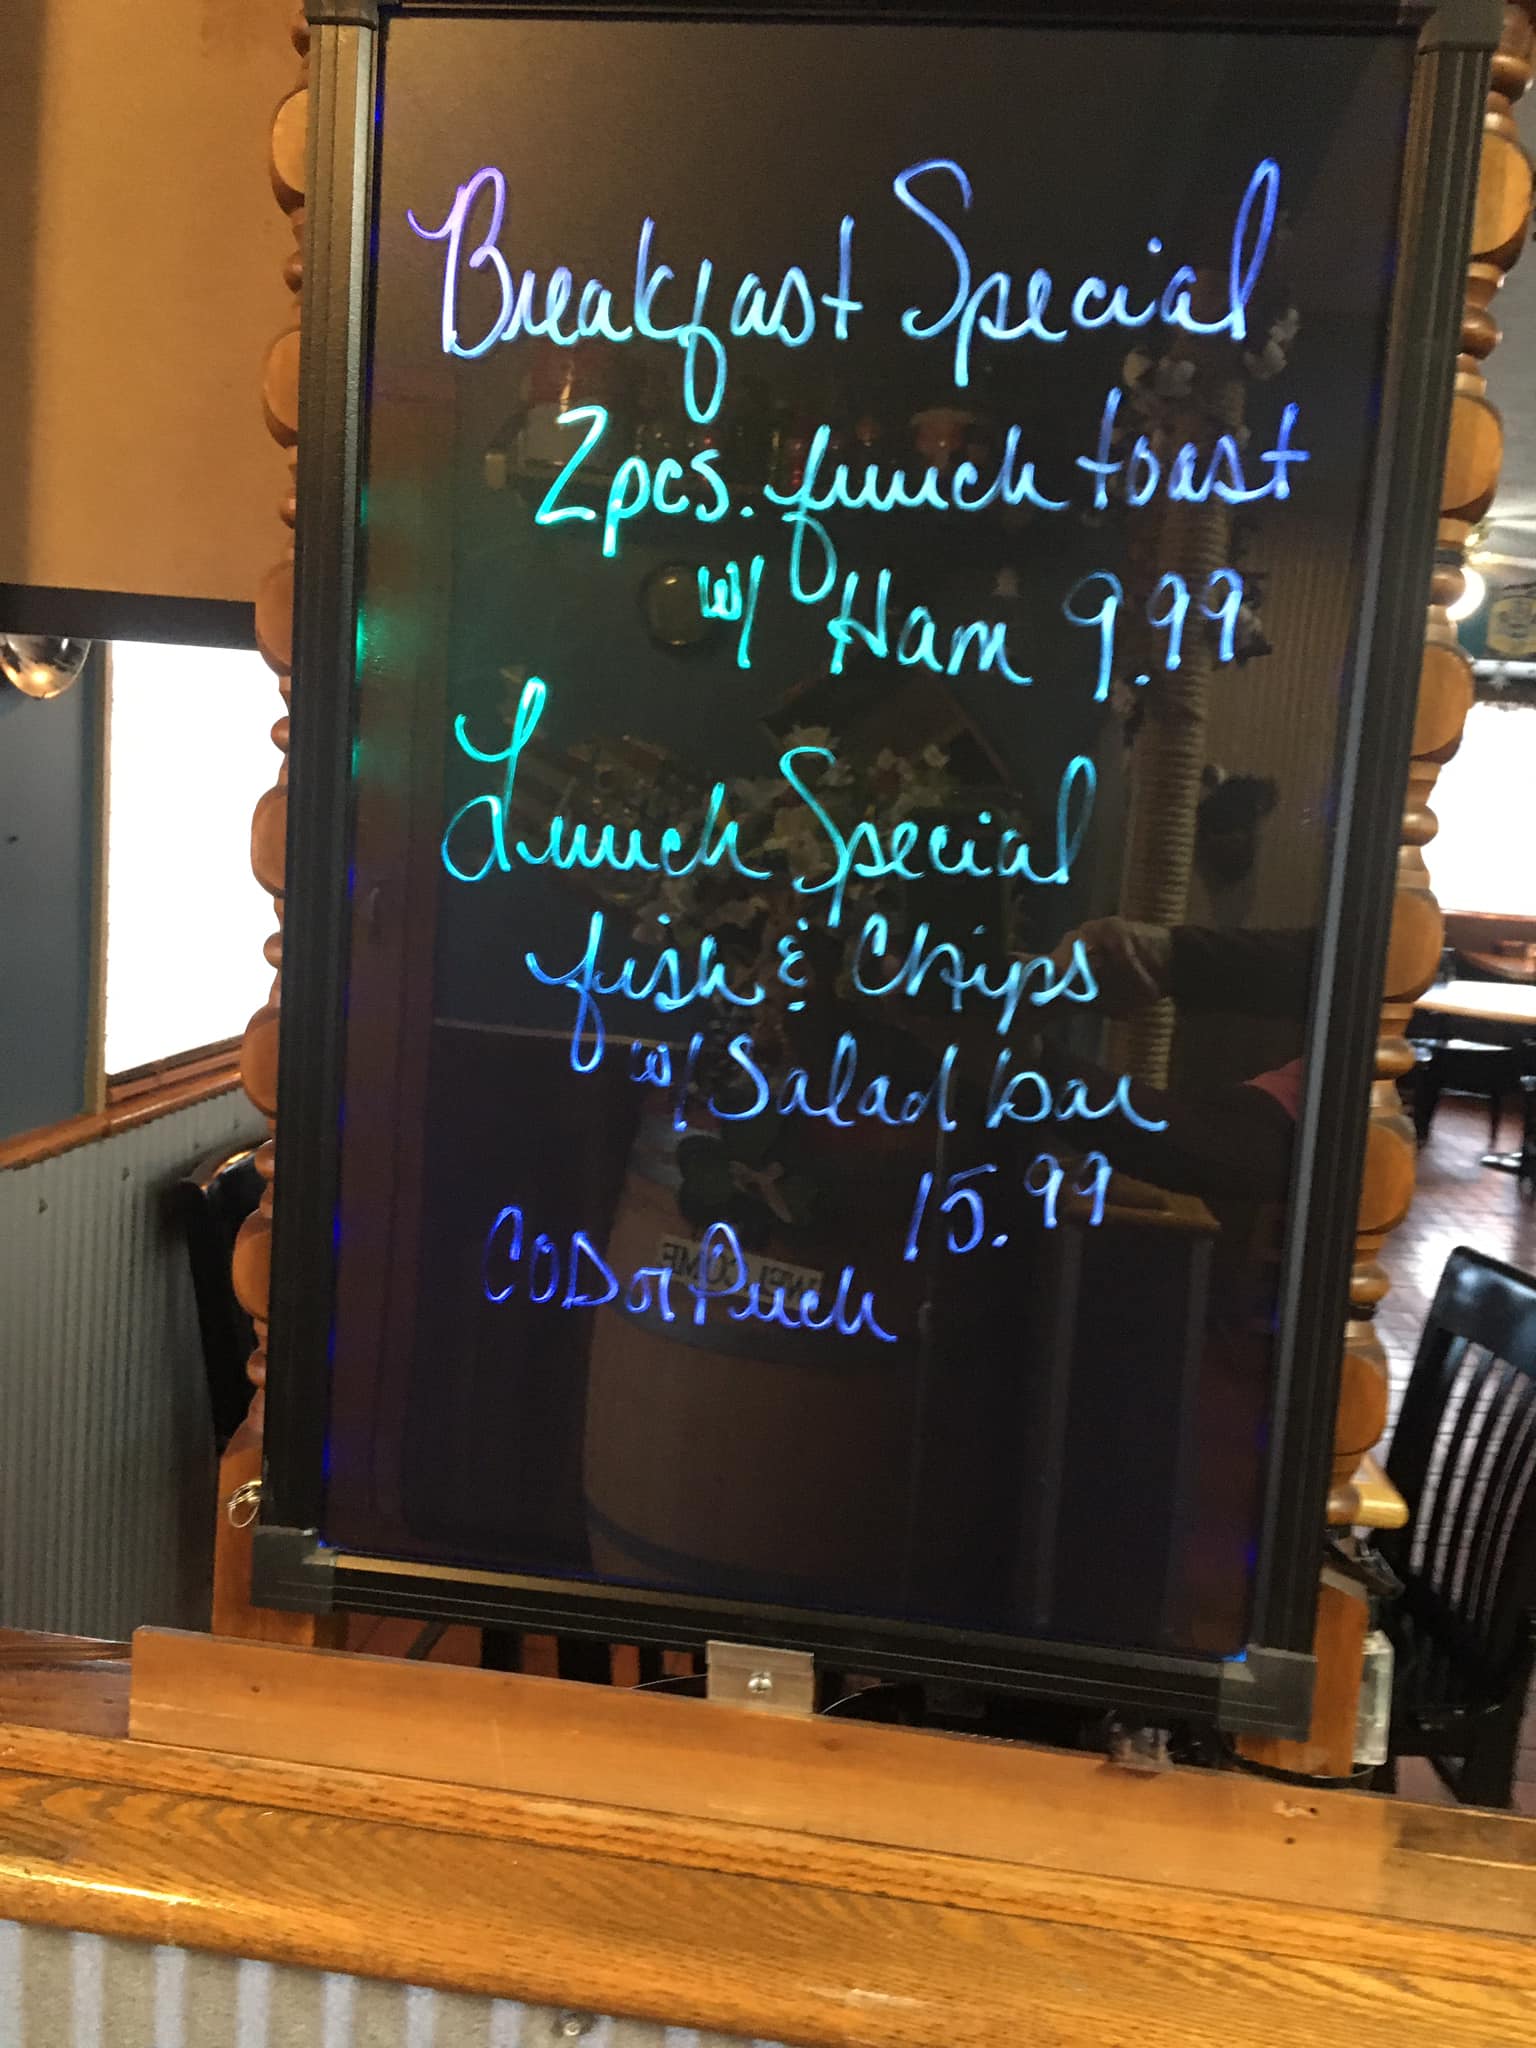 Breakfast Special
2pcs. french toast
w/ Ham 9.99
Lunch Special
fish & Chips
w/ Salad bar
15.99
COD or Perch
WELCOME